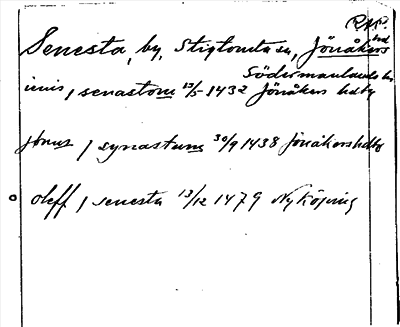 RAP.
Senesta, by, Stigtomta sn, Jönåkers hd
Södermanlands län
innis, senastom 13/5 1432 Jönåkers hdbg
jönus, synastum 30/9 1438 jönåkers hdbg
oleff, senesta 13/12 1479 Nyköping